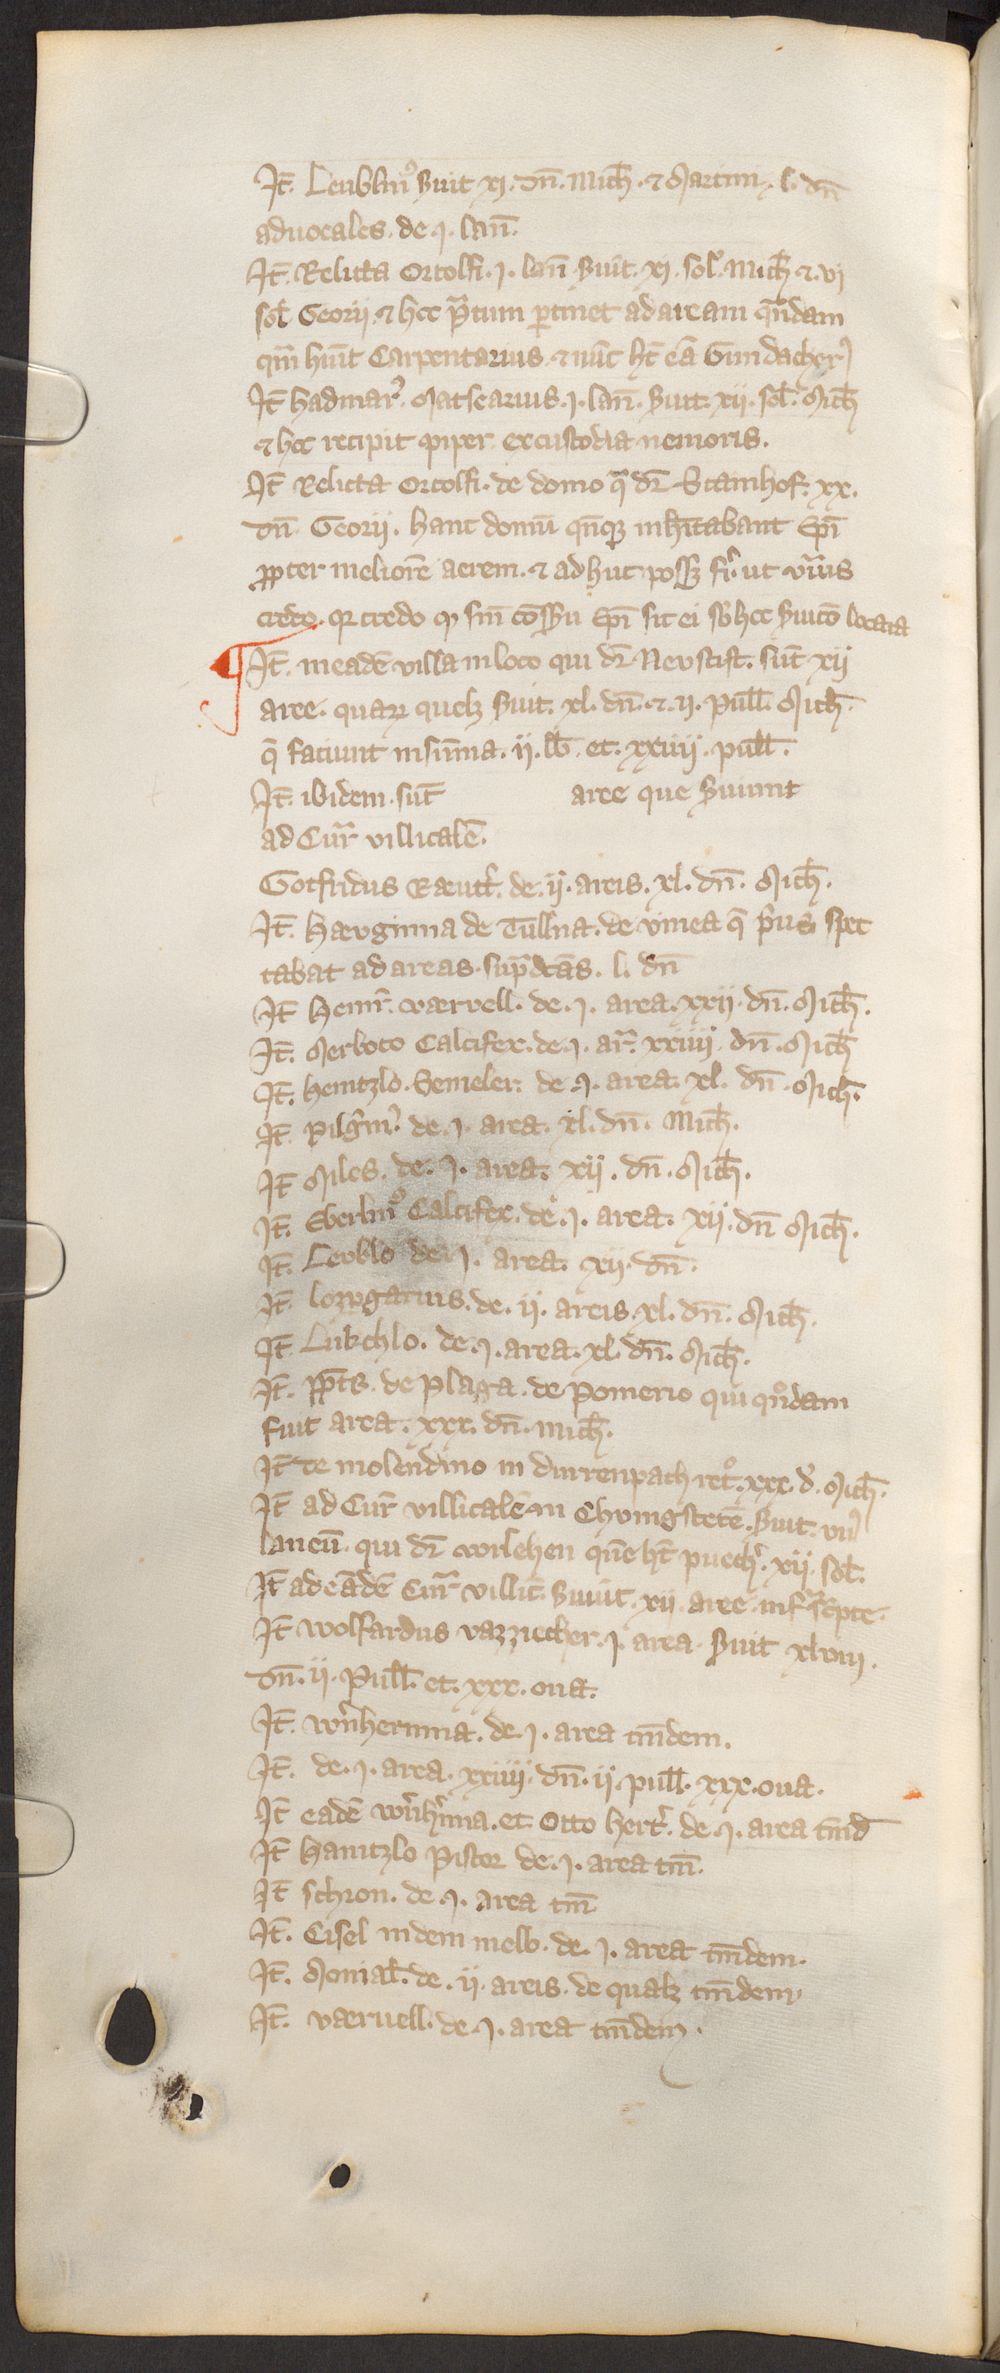 It̄. Leublin⁹ S̄uit xj. dn̄. Mich̄. ⁊ Martini. l. dn̄
aduocales. de .j. lan̄.
It̄. Relicta Ortolfi. j. lan̄ S̄uit. xj. sol̄. Mich̄ ⁊. vj
sol̄ Georij. ⁊ hec p̄tum ꝑtinet ad aream qn̄dam
qm̄ hūit Carpentarius. ⁊ nūc ht̄ eā Gundacher⁹
It̄ hadmar⁹. Matsearius. j. lan̄. S̄uit. xij. sol̄. Mich̄
⁊ hec recipit piper ex custodia nemoris.
It̄ Relicta Ortolfi. de domo q̄ dr̄ Stainhof. xx.
dn̄ Georij. hanc domū qn̄qꝫ inhītabant Ep̄i
ꝓpter meliorē aerem. ⁊ ad huc possꝫ fi⁹i ut
credo q̄ sin̄ cōs̄su Ep̄i sit ei sb̄ hec S̄uico locata
It̄. in eadē villa in loco qui dr̄ Neustift. sūt xij
aree. quaꝝ quelꝫ S̄uit. xl. dn̄. ⁊. ij. pull̄. Mich̄.
q̄ faciunt in sūma. ij. lb̄. et. xxiiij. pull̄.
It̄. ibidem. sūt aree que S̄uiunt
ad Cur̄ villicalē.
Gotfridus Rautt̄. de. ij. areis. xl. dn̄. Mich̄.
It̄. Hæuginna de Tullna. de vinea q̄ prius spec
tabat ad areas. sup̄dc̄as. l. dn̄
It̄ Henr̄. wærvell. de .j. area. xxij. dn̄. Mich̄.
It̄. Merboto Calcifex. de .j. ar̄. xxiiij. dn̄. Mich̄
It̄. Heintzlo. Semeler. de .j. area. xl. dn̄. Mich̄.
It̄. Pilgrm̄⁹. de .j. area. xl. dn̄. Mich̄.
It̄ Miles. de .j. area. xij. dn̄. Mich̄.
It̄. Eberlin⁹ Calcifex. de .j. area. xij. dn̄ Mich̄.
It̄. Leoblo de .j. area. xij. dn̄.
It̄. lozzgatuis. de. ij. areis. xl. dn̄. Mich̄.
It̄ Lūbchlo. de .j. area. xl. dn̄. Mich̄.
It̄. Pp̄ts. de Plaga. de Pomerio qui qn̄dam
fuit area. xxx. dn̄. Mich̄.
It̄ de molendino in durrenpach ret⁰. xxx. d̄. Mich̄.
It̄ ad Cur̄ villicalē in Chungstetē. S̄uit. vn⁹
laneū. qui dr̄ vorlehen quē ht̄ puech⁹. xij. sol̄.
It̄ ad eādē Cur̄ villic̄. S̄uiūt. xij. aree. infˢcpte.
It̄ wolfardus vazziecher. j. area S̄uit xlviij.
dn̄. ij. Pull̄. et. xxx. oua.
It̄. wn̄herinna. de .j. area tm̄dem.
It̄. de .j. area. xxiiij. dn̄. ij. pull̄. xxx. oua.
It̄ eadē wn̄h⁹inna. et Otto hert⁹. de .j. area tm̄d
It̄ Hanitzlo Pistor de .j. area tm̄.
It̄ schron. de .j. area tm̄
It̄. Eisel in dem melb. de .j. area tm̄dem.
It̄. Monial̄. de. ij. areis. de qualꝫ tm̄dem
It̄. værvell. de .j. area tm̄dem.